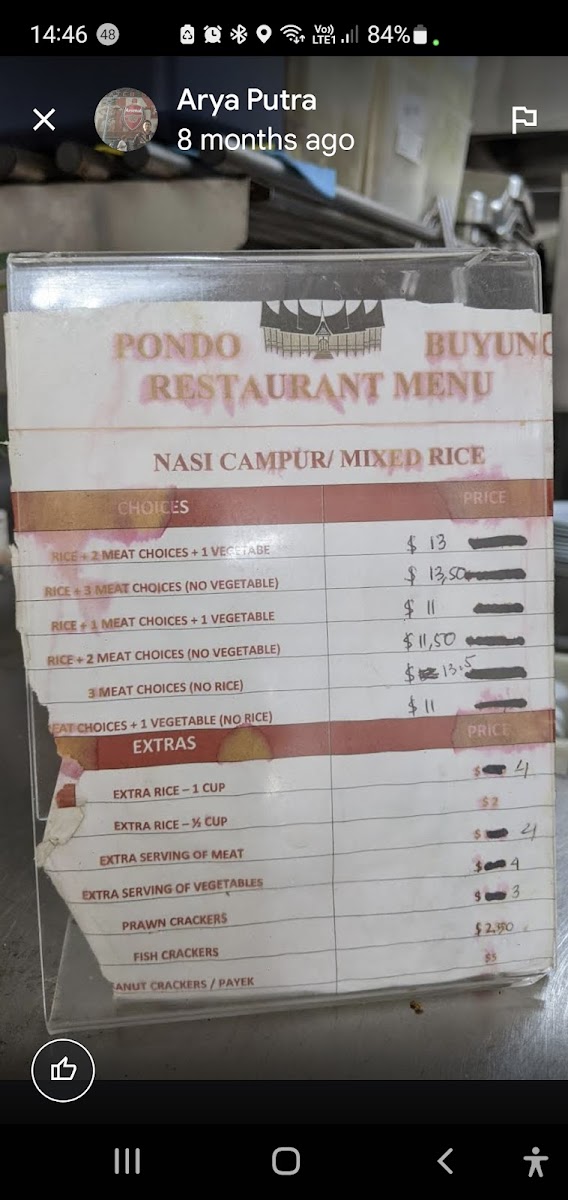 14:46 48 Vo)) LTE1 84%
Arya Putra
8 months ago
PONDO BUYUNG
RESTAURANT MENU
NASI CAMPUR/ MIXED RICE
CHOICES PRICE
RICE + 2 MEAT CHOICES + 1 VEGETABE $ 13
RICE + 3 MEAT CHOICES (NO VEGETABLE) $ 13,50
RICE + 1 MEAT CHOICES + 1 VEGETABLE $ 11
RICE + 2 MEAT CHOICES (NO VEGETABLE) $ 11,50
3 MEAT CHOICES (NO RICE) $ 13.5
EAT CHOICES + 1 VEGETABLE (NO RICE) $ 11
EXTRAS PRICE
EXTRA RICE – 1 CUP $ 4
EXTRA RICE – ½ CUP $2
EXTRA SERVING OF MEAT $ 4
EXTRA SERVING OF VEGETABLES $ 4
PRAWN CRACKERS $ 3
FISH CRACKERS $ 2,50
ANUT CRACKERS / PAYEK $5